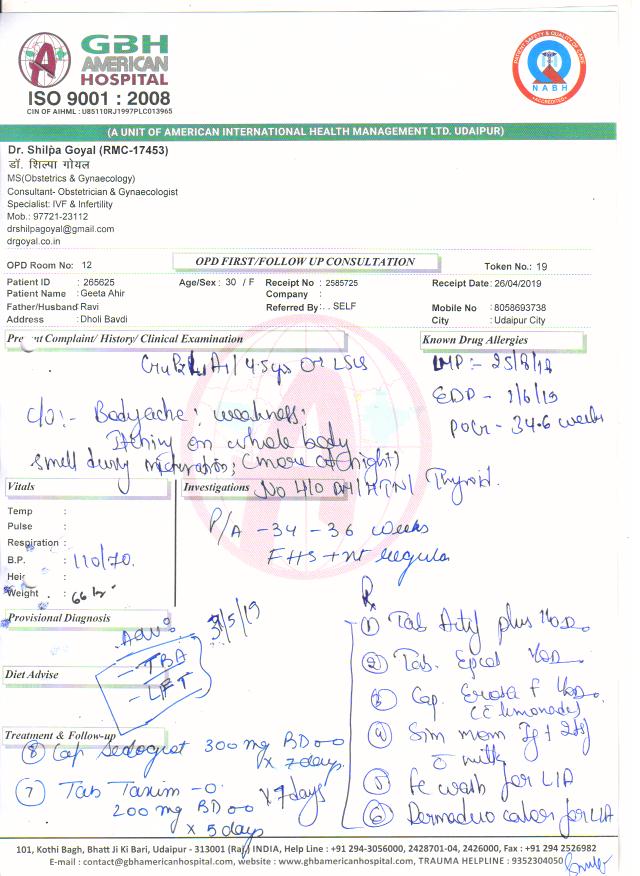 GBH
AMERICAN
HOSPITAL
ISO 9001 : 2008
CIN OF AIHML : U85110RJ1997PLC013965
PATIENT SAFETY & QUALITY OF CARE
NABH
ACCREDITED
(A UNIT OF AMERICAN INTERNATIONAL HEALTH MANAGEMENT LTD. UDAIPUR)
Dr. Shilpa Goyal (RMC-17453)
डॉ. शिल्पा गोयल
MS(Obstetrics & Gynaecology)
Consultant- Obstetrician & Gynaecologist
Specialist: IVF & Infertility
Mob.: 97721-23112
drshilpagoyal@gmail.com
drgoyal.co.in
OPD Room No: 12 OPD FIRST/FOLLOW UP CONSULTATION Token No.: 19
Patient ID : 265625 Age/Sex : 30 / F Receipt No : 2585725 Receipt Date: 26/04/2019
Patient Name : Geeta Ahir Company :
Father/Husband Ravi Referred By: . . SELF Mobile No : 8058693738
Address : Dholi Bavdi City : Udaipur City
Complaint/ History/ Clinical Examination Known Drug Allergies
4.5 yrs LSCS LMP :- 25/8/18
EDD - 1/6/19
POG - 34.6 weeks
c/o :- Bodyache ; weakness ;
Itching on whole body
(more at night)
Vitals Investigations No H/O DM/HTN/ Thyroid.
Temp :
Pulse :
Respiration :
B.P. : 110/70.
:
Weight : 66
P/A - 34 - 36 weeks
FHS + nt Regular
Provisional Diagnosis
Adv: 3/5/19
- TBA
- LFT
Diet Advise
Rx
① Tab plus 1 OD
② Tab. 1 OD
③ Cap. F 1 OD
(c lemonade)
④ Sim mom
c milk
⑤ wash for L/A
⑥ Dermadew for L/A
Treatment & Follow-up
⑧ Cap 300 mg BD
x 7 days
⑦ Tab Taxim - O x 7 days
200 mg BD
x 5 days
101, Kothi Bagh, Bhatt Ji Ki Bari, Udaipur - 313001 (Raj) INDIA, Help Line : +91 294-3056000, 2428701-04, 2426000, Fax : +91 294 2526982
E-mail : contact@gbhamericanhospital.com, website : www.gbhamericanhospital.com, TRAUMA HELPLINE : 9352304050